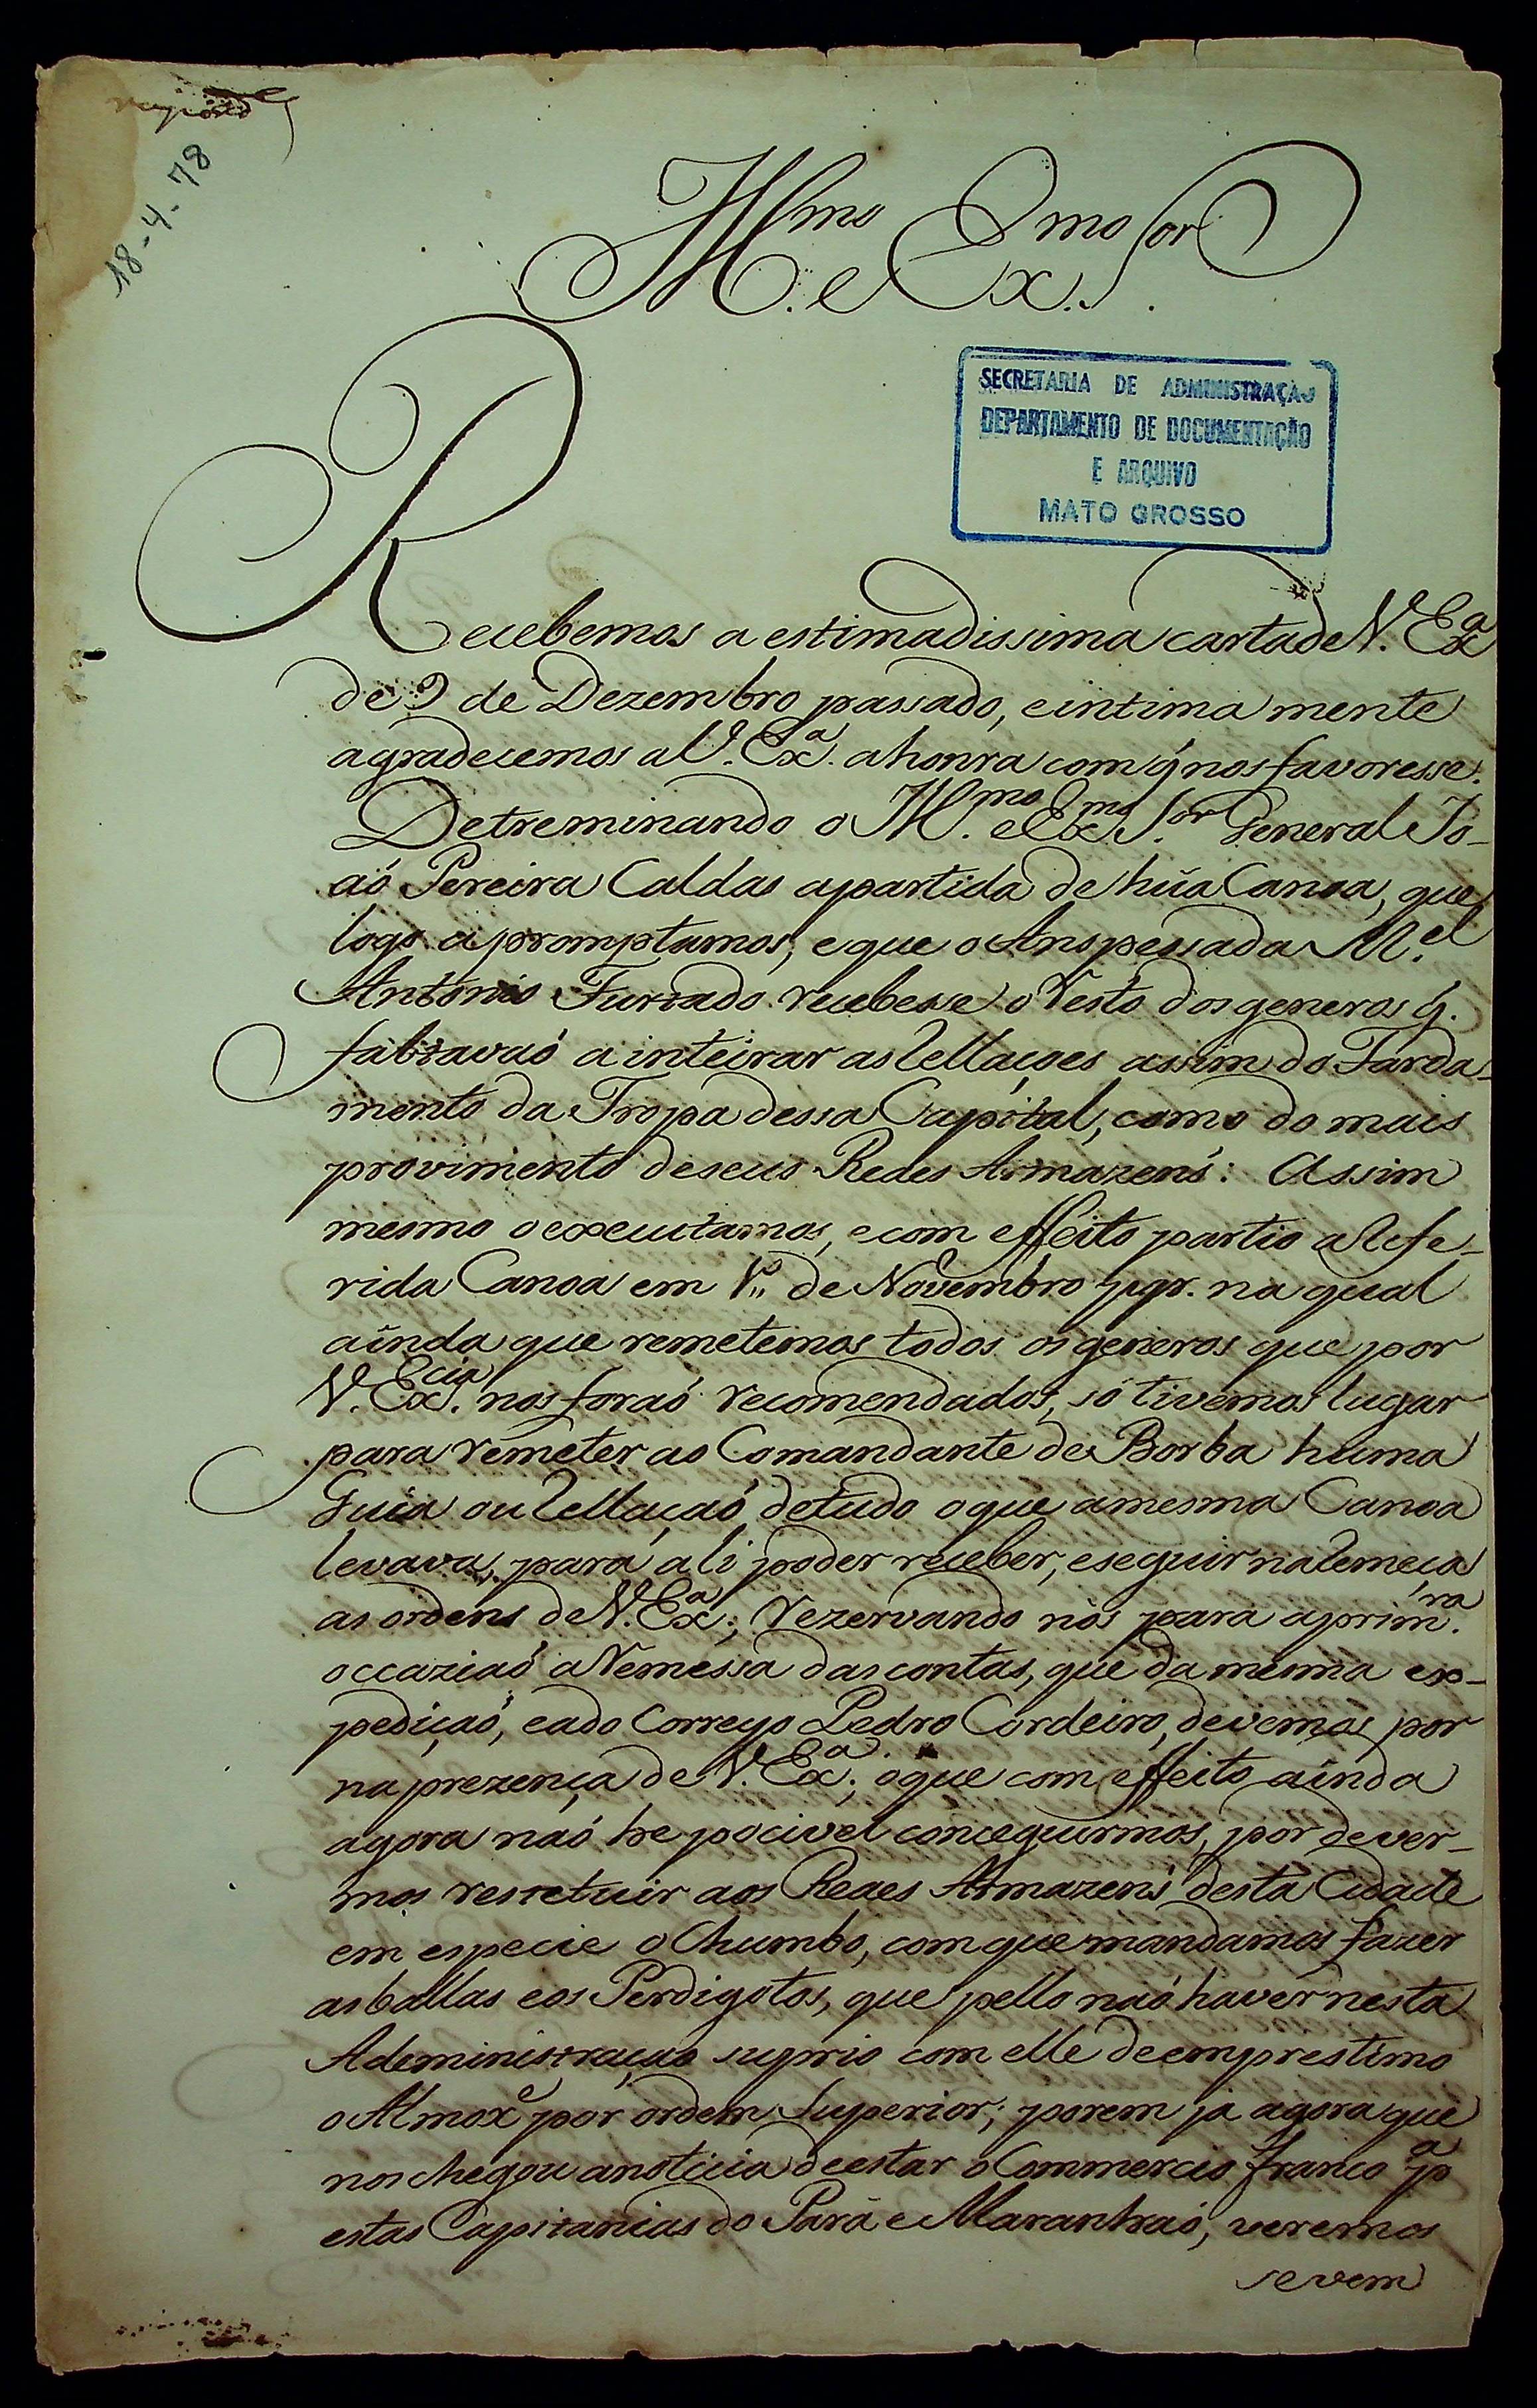 18-4-78
Ill.mo e Ex.mo S.or
SECRETARIA DE ADMINISTRAÇÃO
DEPARTAMENTO DE DOCUMENTAÇÃO
E ARQUIVO
MATO GROSSO
Recebemos a estimadissima carta de V. Ex.a
de 9 de Dezembro passado, e intima mente
agradecemos a V. Ex.a a honra com q̃ nos favoresse.
Detreminando o Ill.mo e Ex.mo S.or General Jo-
aó Pereira Caldas a partida de hũa Canoa, que
logo apromptamos, e que o Anspessada M.el
Antonio Furtado recebesse o resto dos generos q̃.
faltavaó a inteirar as rellaçoes assim do Farda-
mento da Tropa dessa Capital, como do mais
provimento de seus Reaes Armazens: Assim
mesmo o executamos, e com effeito partio a refe-
rida Canoa em de Novembro na qual
ainda que remetemos todos os generos que por
V. Ex.cia nos foraó recomendados, só tivemos lugar
para remeter ao Comandante de Borba huma
Guia ou rellaçaó de tudo o que a mesma Canoa
levava, para ali poder receber, e seguir na remeça
as ordens de V. Ex.a; rezervando nós para a prim.ra
occaziaó a remessa das contas, que da mesma ex-
pediçaó, e a do Correyo Pedro Cordeiro, devemos por
na prezença de V. Ex.a; o que com effeito ainda
agora naó he pocivel conceguirmos, por dever-
mos restetuir aos Reaes Armazens desta Cidade
em especie o Chumbo, com que mandamos fazer
as ballas e os Perdigotos, que pello naó haver nesta
Adeministraçao suprio com elle de emprestimo
o Almox.e por ordem Superior; porem ja agora que
nos chegou a noticia de estar o Commercio franco p.a
estas Capitanias do Pará e Maranhaó, veremos
se vem